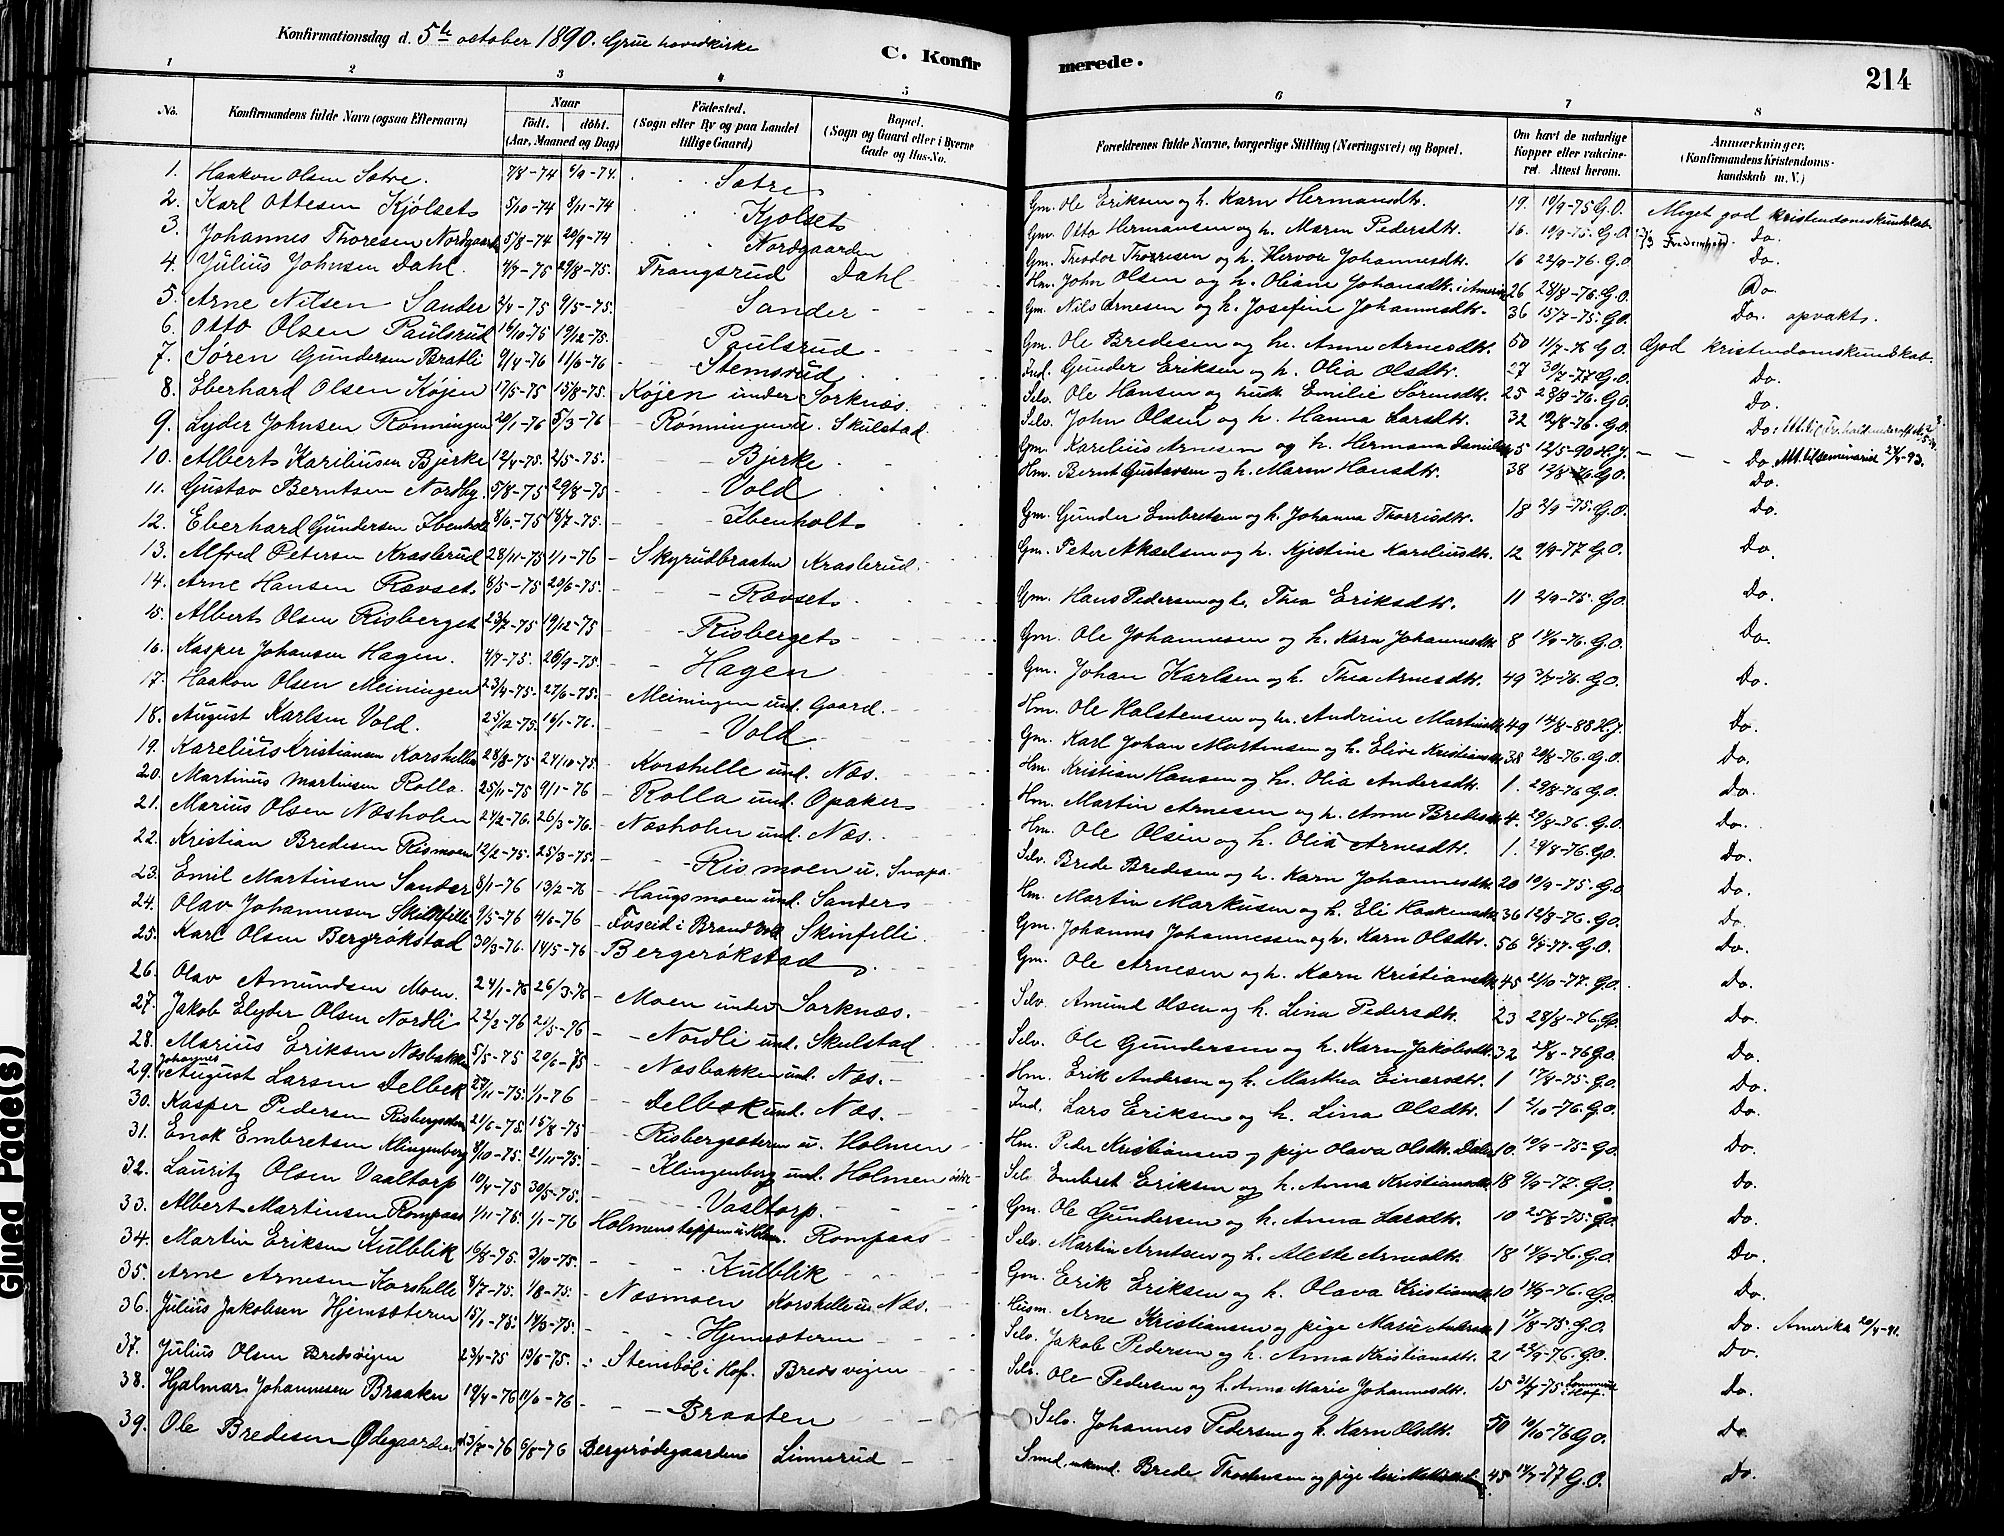 Konfirmationsdag d. 5te october 1890. Grue hovedkirke
C. Konfir
merede.
214
1 2 3 4 5 6 7 8
No. Konfirmandens fulde Navn (ogsaa Efternavn) Naar Födt. döbt. (Aar, Maaned og Dag) Födested. (Sogn eller By og paa Landet tillige Gaard) Bopæl. (Sogn og Gaard eller i Byerne Gade og Hus-No.
Forældrenes fulde Navne, borgerlige Stilling (Næringsvei) og Bopæl. Om havt de naturlige Kopper eller vakcineret. Attest herom. Anmærkninger. (Konfirmandens Kristendomskundskab m. V.)
1. Haakon Olsen Sætre. 7/8-74 6/9-74. Sætre Gm. Ole Eriksen og h. Karn Hermansdtr. 19. 10/9-75 G.O. Meget god kristendomskundskab
2. Karl Ottesen Kjölset 5/10-74 8/11-74 Kjölset Gm. Otto Hermansen og h. Maren Pedersdtr. 16. 19/9-75. G.O. Do.
3. Johannes Thoresen Nordgaard 5/8-74 20/9-74 Nordgaarden Gm. Theodor Thorresen og h. Hervor Johannesdtr. 16 22/9-76. G.O. Do.
4. Julius Johnsen Dahl. 4/7-75 29/8-75. Trangsrud Dahl Hm. John Olsen og h. Oliane Johansdtr. i Amerika 26 28/8-76. G.O. Do
5. Arne Nilsen Sander 2/4-75 9/5-75. Sander Gm. Nils Arnesen og h. Josefine Johannesdtr. 36 15/7-75. G.O. Do. opvakt.
6. Otto Olsen Paulsrud 16/10-75 19/12-75. Paulsrud Gm. Ole Bredesen og h. Anne Arnesdtr. 50 11/7-76 G.O. God kristendomskundskab.
7. Søren Gundersen Bratli 9/4-76 11/6-76 Stemsrud Ind. Gunder Eriksen og h. Olia Olsdtr. 27 30/7-77 G.O. Do.
8. Eberhard Olsen Köjen 17/5-75 15/8-75. Köjen under Sorknæs. Selv. Ole Hansen og hust. Emilie Sörensdtr. 25 28/8-76. G.O. Do.
9. Lyder Johnsen Rönningen 20/1-76 5/3-76 Rönningen u. Skulstad. Selv. John Olsen og h. Hanna Larsdtr. 32 19/8-76. G.O. Do.
10. Albert Kareliusen Bjerke 12/4-75. 2/5-75. Bjerke Gm. Karelius Arnesen og h. Hermana 45 12/5-90 H.J. Do. Att. til seminariet 27/4-93.
11. Gustav Berntsen Nordby. 5/8-75 29/8-75 Vold Hm. Bernt Gustavsen og h. Maren Hansdtr. 38 12/8-76 G.O. Do.
12. Eberhard Gundersen Ibenholt 8/6-75 18/7-75. Ibenholt Gm. Gunder Embretsen og h. Johanna Thorrisdtr. 18 2/9-75. G.O. Do.
13. Alfred Petersen Kraslerud 28/11-75 1/1-76 Skyrudbraaten Kraslerud. Gm. Peter Akselsen og h. Kjestine Kareliusdtr. 12 9/9-77 G.O. Do.
14. Arne Hansen Rævset. 8/5-75 20/6-75. Rævset Gm. Hans Pedersen og h. Thea Eriksdtr. 11 2/9-75. G.O. Do.
15. Albert Olsen Risberget 23/7-75 19/12-75 Risberget Gm. Ole Johannesen og h. Karn Johannesdtr. 8 11/9-76. G.O. Do.
16. Kasper Johansen Hagen. 4/7-75. 26/9-75. Hagen Gm. Johan Karlsen og h. Thea Arnesdtr. 49 3/7-76. G.O. Do.
17. Haakon Olsen Meiningen 23/4-75. 27/6-75. Meiningen und. Gaard. Hm. Ole Halstensen og h. Andrine Martinsdtr. 49 14/8-88 H.J. Do.
18. August Karlsen Vold. 25/2-75. 16/1-76. Vold Gm. Karl Johan Mortensen og h. Elive Kristiansdtr. 38 20/8-76. G.O. Do.
19. Karelius Kristiansen Korshelle 28/8-75 24/10-75. Korshelle und. Næs. Hm. Kristian Hansen og h. Olia Andersdtr. 1. 29/8-76 G.O. Do.
20. Martinus Martinsen Rolla. 25/11-75 9/1-76 Rolla und. Opaker Hm. Martin Arnesen og h. Anne Bredesdtr. 4. 29/8-76. G.O. Do.
21. Marius Olsen Næsholen 24/2-76. 26/3-76. Næsholen und. Næs. Hm. Ole Olsen og h. Olia Arnesdtr. 1. 28/8-76. G.O. Do.
22. Kristian Bredesen Rismoen 12/2-75. 25/3-75. Rismoen u. Svapa. Selv. Brede Bredesen og h. Karn Johannesdtr. 20 19/9-75. G.O. Do.
23. Emil Martinsen Sander 8/1-76 13/2-76 Haugsmoen und. Sander Hm. Martin Markusen og h. Eli Haakensdtr. 36 12/8-76. G.O. Do.
24. Olav Johannesen Skinfelli 9/5-76 4/6-76 Fosseid i Brandvold Skinfelli. Gm. Johannes Johannessen og h. Karn Olsdtr. 56 9/8-77. G.O. Do.
25. Karl Olsen Bergrökstad 30/3-76. 14/5-76 Bergerökstad Gm. Ole Arnesen og h. Karn Kristiansdtr. 45 2/10-77. G.O. Do.
26. Olav Amundsen Moen. 24/1-76 26/3-76 Moen under Sorknæs. Selv. Amund Olsen og h. Lina Pedersdtr. 23 28/8-76. G.O. Do.
27. Jakob Elyder Olsen Nordli 22/2-76 21/5-76 Nordli und. Skulstad Selv. Ole Gundersen og h. Karn Jakobsdtr. 32 28/8-76 G.O. Do.
28. Marius Eriksen Næsbakken 5/5-75 20/6-75 Næsbakken und. Næs. Hm. Erik Andersen og h. Marthea Einarsdtr. 1 17/8-75. G.O. Do.
29. Johannes August Larsen Delbæk 27/11-75. 1/1-76 Delbæk und. Næs. Ind. Lars Eriksen og h. Lina Olsdtr. 1 2/10-76. G.O. Do.
30. Kasper Pedersen Risbergsæteren 21/6-75. 15/8-75 Risbergsæteren u. Holmen Hm. Peder Kristiansen og pige Olava Olsdtr. 10. 19/9-75. G.O. Do.
31. Enok Embretsen Klingenberg 8/10-75. 21/11-75. Klingenberg und. Holmen Selv. Embret Eriksen og h. Anna Kristiansdtr. 18 9/9-77. G.O. Do.
32. Lauritz Olsen Vaaltorp 10/4-75 30/5-75. Vaaltorp. Gm. Ole Gundersen og h. Anna Larsdtr. 10 25/8-75. G.O. Do.
33. Albert Martinsen Rompaas 1/11-75. 1/1-76 Holmensteppen u. Holm. Rompaas Selv. Martin Arntsen og h. Aleste Arnesdtr. 18 11/9-76. G.O. Do.
34. Martin Eriksen Kulblik 16/8-75. 3/10-75. Kulblik Gm. Erik Eriksen og h. Olava Kristiansdtr. 10 14/9-76. G.O. Do.
35. Arne Arnesen Korshelle 8/7-75. 1/8-75. Næsmoen Korshelle u. Næs. Husm. Arne Kristiansen og pige Marie 1 17/8-75. G.O. Do. Amerika 20/4-91.
36. Julius Jakobsen Hjemsæteren 15/1-75. 14/3-75. Hjemsæteren Selv. Jakob Pedersen og h. Anna Kristiansdtr. 21 23/9-76. G.O. Do.
37. Julius Olsen Bredsvigen 23/4-75 13/6-75. Stensböl i Hof. Bredsvigen Selv. Ole Pedersen og h. Anna Marie Johannesdtr. 15 31/7-75. Do.
38. Hjalmar Johannesen Braaten 19/4-76 11/6-76 Braaten Selv. Johannes Pedersen og h. Karn Olsdtr. 50 10/10-76 G.O. Do.
39. Ole Bredesen Ödegaarden 23/7-76 6/8-76 Bergerödegaarden Linnerud Smed, ukend. Brede Thostensen og pige 45 14/7-77 G.O. Do.
Glued Page(s)